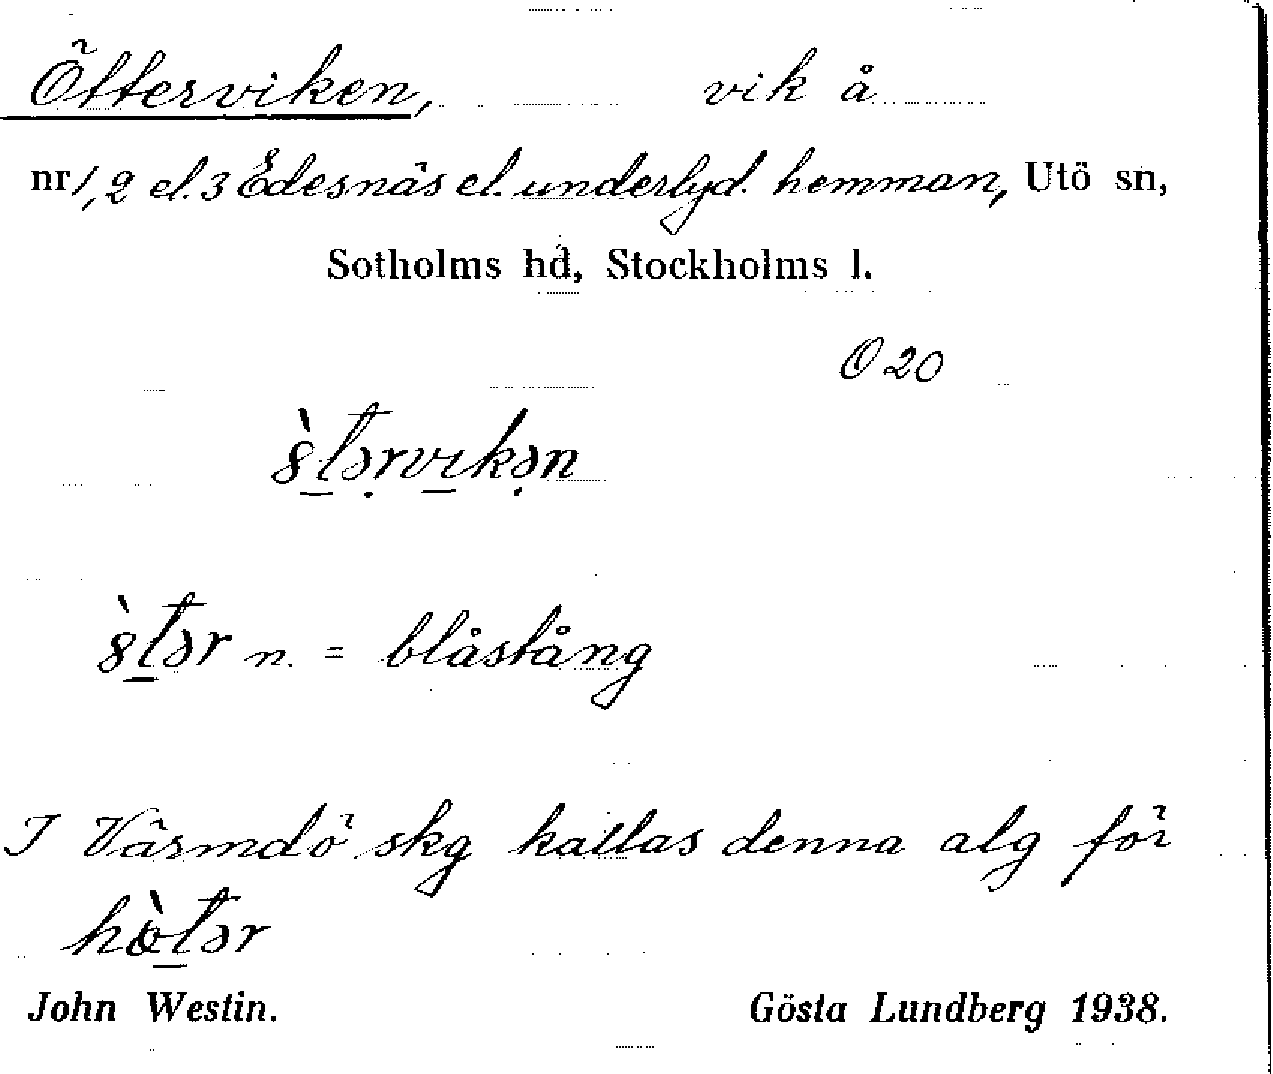 Ötterviken, vik å
nr 1, 2 el. 3 Edesnäs el. underlyd. hemman, Utö sn,
Sotholms hd, Stockholms l.
O 20
n. = blåstång
I Värmdö skg kallas denna alg för
John Westin. Gösta Lundberg 1938.